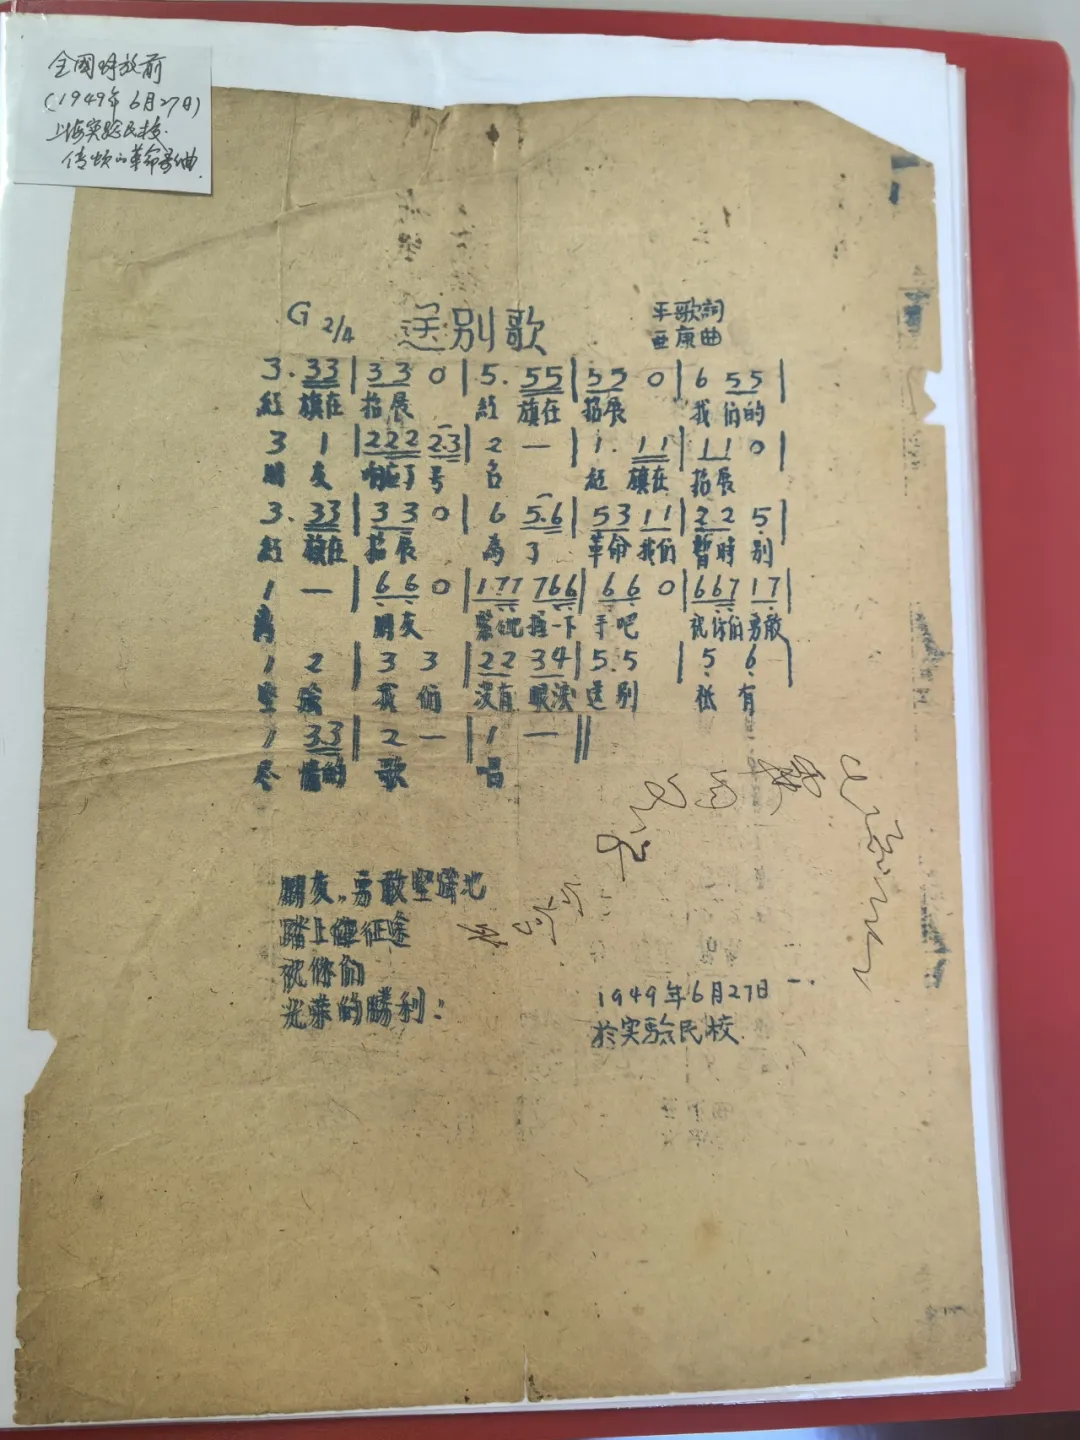 全國解放前
(1949年6月27日)
上海实验民校
传颂的革命歌曲.
G 2/4 送别歌 平歌詞
亜康曲
3. 33 | 33 0 | 5. 55 | 55 0 | 6 55 |
紅 旗在 招展 紅 旗在 招展 我 们的
3 1 | 222 2.3 | 2 — | 1. 11 | 11 0 |
朋 友 响应了 号 召 紅 旗在 招展
3. 33 | 33 0 | 6 5.6 | 53 11 | 22 5 |
紅 旗在 招展 為 了 革命 我们 暫時 别
1 — | 66 0 | 177 766 | 66 0 | 667 17 |
离 朋友 緊紧握一下 手吧 祝你们勇敢
1 2 | 3 3 | 22 34 | 5.5 | 5 6 |
堅 强 我 们 没有 眼淚 送别 祗 有
1 33 | 2 — | 1 — ||
尽 情的 歌 唱
朋友,,勇敢堅强地
踏上征途
祝你们
光荣的勝利:
1949年6月27日
於实験民校.